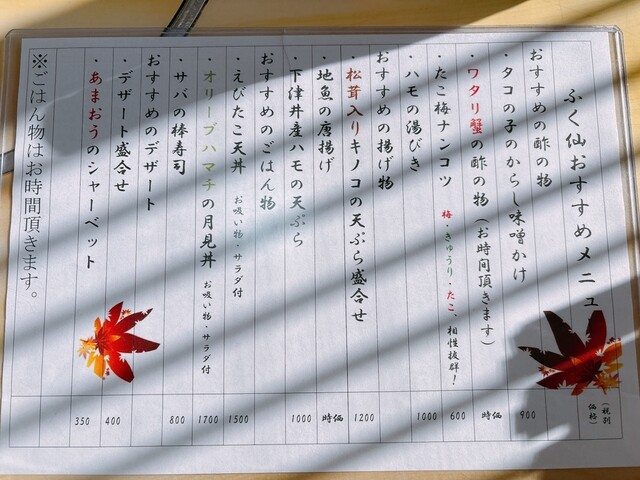 ふく仙おすすめメニュー (税別価格)
おすすめの酢の物
・タコの子のからし味噌かけ 900
・ワタリ蟹の酢の物(お時間頂きます) 時価
・たこ梅ナンコツ 梅・きゅうり・たこ、相性抜群! 600
・ハモの湯びき 1000
おすすめの揚げ物
・松茸入りキノコの天ぷら盛合せ 1200
・地魚の唐揚げ 時価
・下津井産ハモの天ぷら 1000
おすすめのごはん物
・えびたこ天丼 お吸い物・サラダ付 1500
・オリーブハマチの月見丼 お吸い物・サラダ付 1700
・サバの棒寿司 800
おすすめのデザート
・デザート盛合せ 400
・あまおうのシャーベット 350
※ごはん物はお時間頂きます。